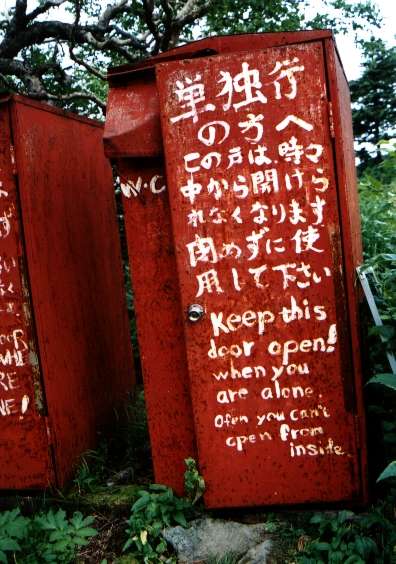 単独行
の方へ
この戸は、時々
中から開けら
れなくなります
閉めずに使
用して下さい
W・C
Keep this
door open!
when you
are alone.
Ofen you can't
open from
inside.